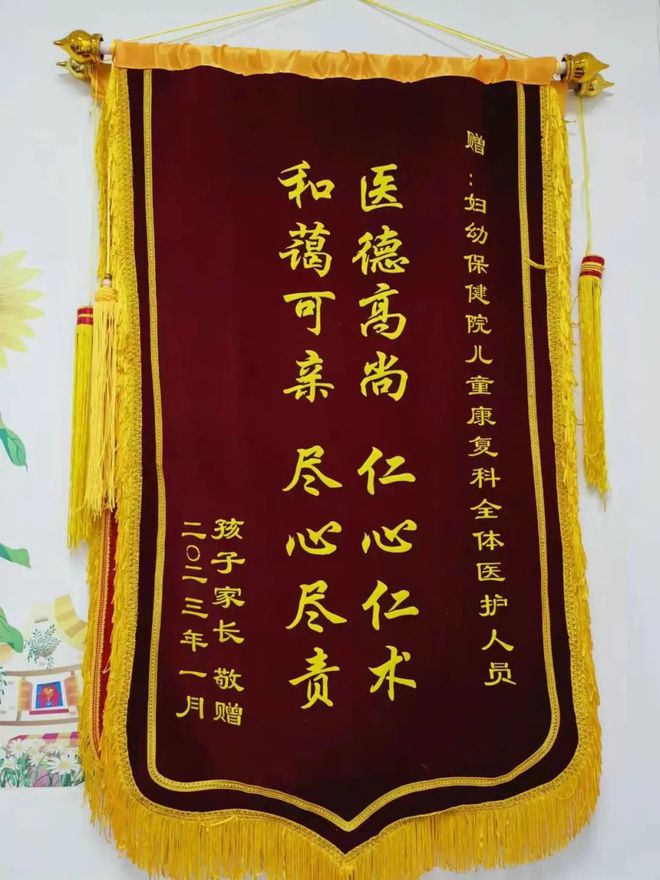 赠：妇幼保健院儿童康复科全体医护人员
医德高尚 仁心仁术
和蔼可亲 尽心尽责
孩子家长 敬赠
二〇二三年一月